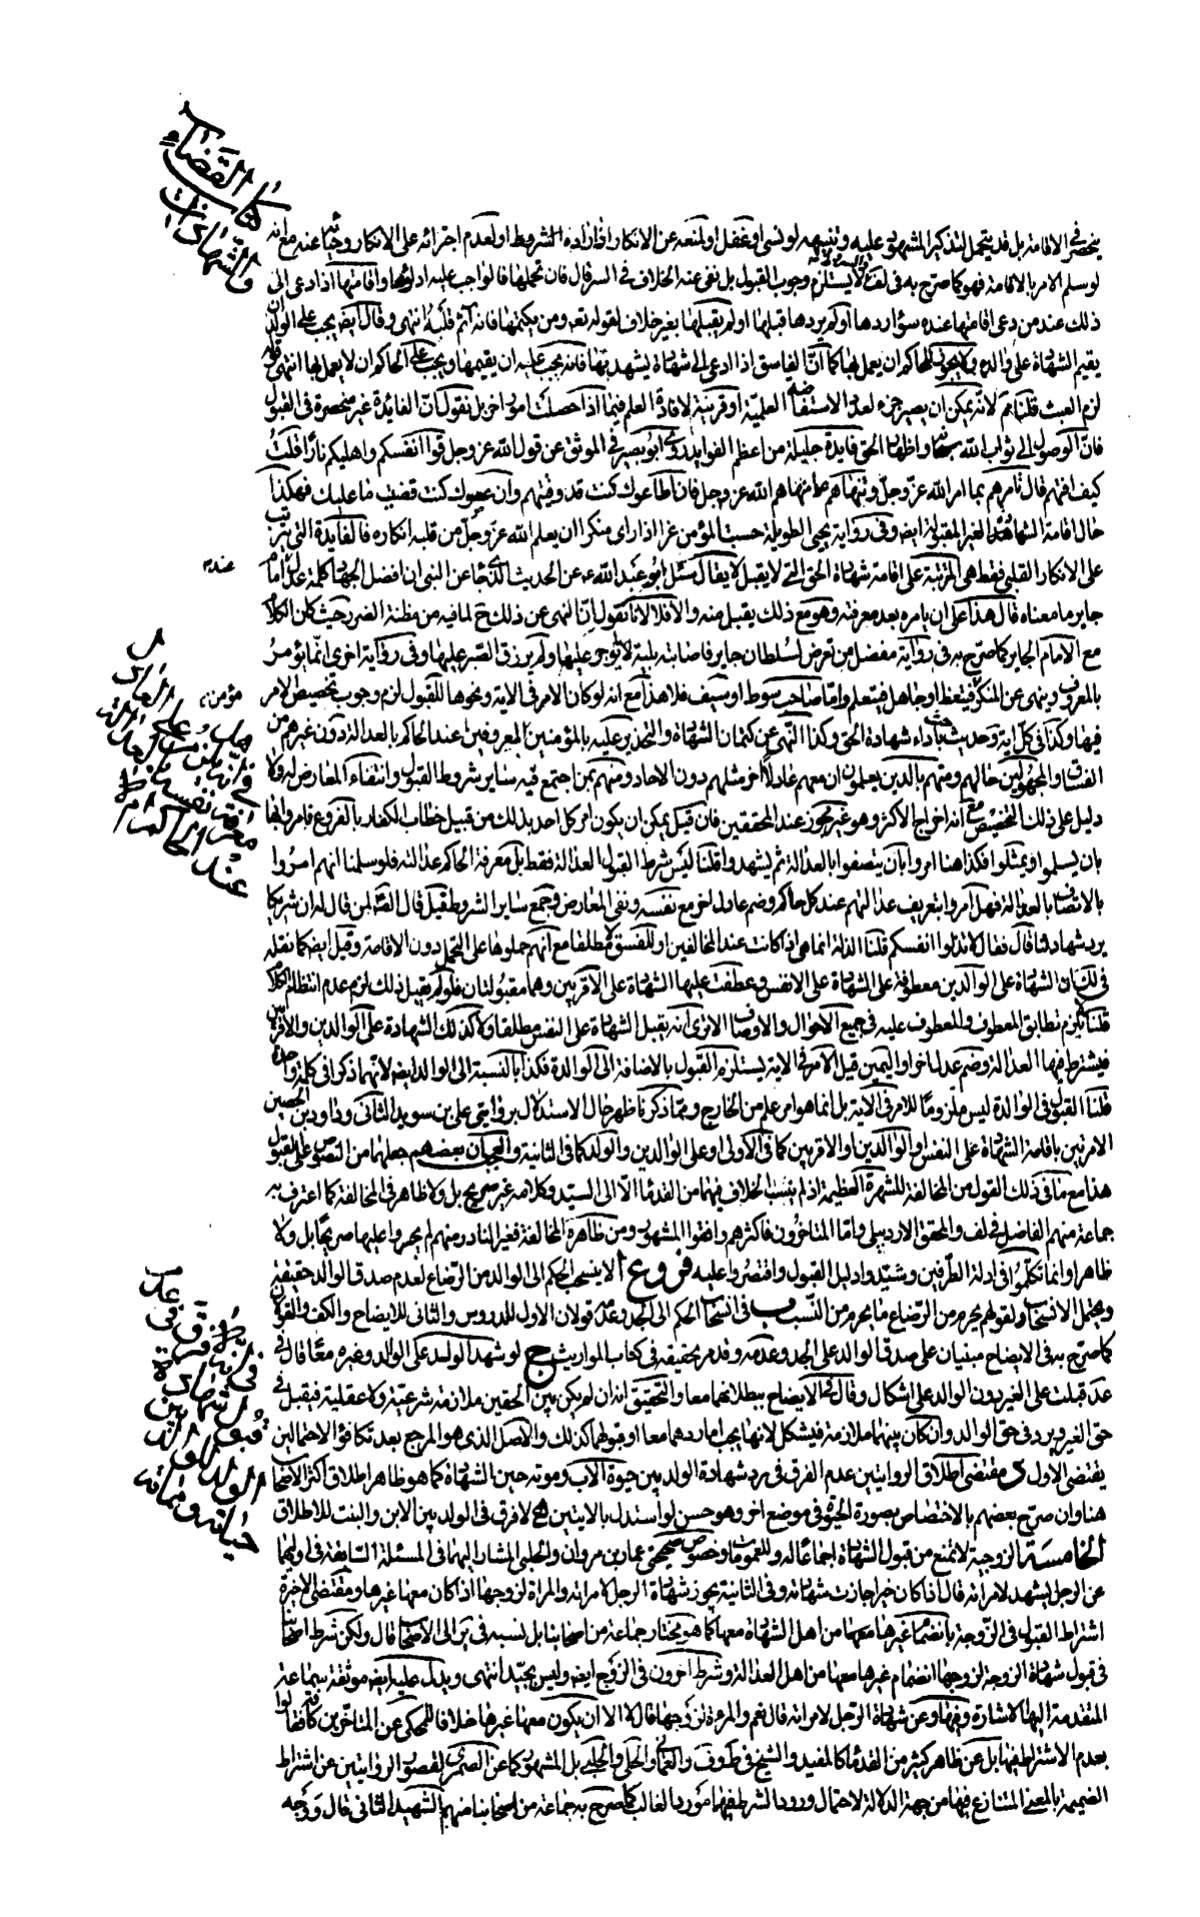 كتاب القضاء
والشهادات
ينحصر في الاقامة بل قد يتحمل لتذكير المشهود عليه وتنبيهه لو نسى او غفل او لمنعه عن الانكار اذا اراده الشروط او لعدم اجترائه على الانكار وجنائه عنه مع انه
لو سلم الامر بالاقامة فهو كما صرح به في لف لا يستلزم وجوب القبول بل نفى عنه الخلاف في السرائر قال فان تحملها فالواجب عليه اداؤها واقامتها اذا دعى الى
ذلك عند من دعى اقامتها عنده سواء ردها او لم يردها قبلها او لم يقبلها بغير خلاف لقوله تعه ومن يكتمها فانه آثم قلبه انتهى وقال ايضه يجب على الولد ان
يقيم الشهادة على والده ولا يجوز للحاكم ان يعمل بها كما ان الفاسق اذا ادعى الى شهادة يشهد بها فانه يجب عليه ان يقيمها ويجب على الحاكم ان لا يعمل بها انتهى قوله
لزم العبث قلنا نمنع لانه يمكن ان يصير جزء لعدد الاستفاضه العلمية او قرينة لافادة العلم فيما اذا حصلت امور اخر بل نقول ان الفايدة غير منحصرة في القبول
فان الوصول الى ثواب الله سبحانه واظهار الحق فايدة جليلة من اعظم الفوايد روى ابو بصير في الموثق عن قول الله عز وجل قوا انفسكم واهليكم نارا قلت
كيف اقيهم قال تامرهم بما امر الله عز وجل وتنهاهم عما نهاهم الله عز وجل فان اطاعوك كنت قد وقيتهم وان عصوك كنت قضيت ما عليك فهكذا
حال اقامة الشهادة الغير المقبولة ايضه وفي رواية يحيى الطويلة حسب المؤمن عزا اذا راى منكرا ان يعلم الله عز وجل من قلبه انكاره فالفايدة التي تترتب
على الانكار القلبي فقط هي المترتبة على اقامة شهادة الحق التي لا يقبل لا يقال سئل ابو عبد الله عه عن الحديث الذي جاء عن النبي ان افضل الجهاد كلمة عدل عند امام
جاير ما معناه قال هذا على ان يامره بعد معرفته وهو مع ذلك يقبل منه والا فلا لانا نقول ان النهى عن ذلك ح لما فيه من مظنة الضرر حيث كان الكلام
مع الامام الجاير كما صرح به في رواية مفضل من تعرض لسلطان جاير فاصابته بلية لا يوجر عليها ولم يرزق الصبر عليها وفي رواية اخرى انما يؤمر
بالمعروف وينهى عن المنكر مؤمن فيتعظ او جاهل فيتعلم واما صاحب سوط او سيف فلا هذا مع انه لو كان الامر في الاية ونحوها للقبول لزم وجوب تخصيص الامر
فيها وكذا في كل اية وحديث باداء شهادة الحق وكذا النهى عن كتمان الشهادة والتحذير عليه بالمؤمنين المعروفين عند الحاكم بالعدالة دون غيرهم من
الفساق والمجهولين حالهم ومنهم بالذين يعلمون ان معهم عادلا اخر مثلهم دون الاحاد ومنهم بمن اجتمع فيه ساير شروط القبول وانتفاء المعارض له ولا
دليل على ذلك التخصيص مع انه اخراج الاكثر وهو غير مجوز عند المحققين فان قيل يمكن ان يكون امر كل احد بذلك من قبيل خطاب الكفار بالفروع فامروا بها
بان يسلموا ويمثلوا فكذا هنا امروا بان يتصفوا بالعدالة ثم يشهدوا قلنا ليس شرط القبول العدالة فقط بل معرفة الحاكم عدالته فلو سلمنا انهم امروا
بالاتصاف بالعدالة فهل امروا بتعريف عدالتهم عند كل حاكم وضم عادل اخر مع نفسه ونفى المعارض وجمع ساير الشروط قيل قال الصه لمن قال له ان شريكا
يرد شهادتنا قال فقال لا تذلوا انفسكم قلنا الذلة انما هي اذا كانت عند المخالفين او للفسق لا مطلقا مع انهم حملوها على التحمل دون الاقامة وقيل ايضه كما نقله
في الشهادة على الوالدين معطوفة على الشهادة على الانفس وعطفت عليها الشهادة على الاقربين وهما مقبولتان فلو لم يقبل ذلك لزم عدم انتظام الكلام
قلنا لا يلزم تطابق المعطوف والمعطوف عليه في جميع الاحوال والاوصاف الا ترى انه يقبل الشهادة على النفس مطلقا ولا كذلك الشهادة على الوالدين والاقربين
فيشترط فيها العدالة وضم عدل اخر او اليمين قيل الامر في الاية يستلزم القبول بالاضافة الى الوالدة فكذا بالنسبة الى الوالد ايضه لانهما ذكرا في كلمة واحدة
قلنا القبول في الوالدة ليس ملزوما للامر في الاية بل انما هو امر علم من الخارج ومما ذكرنا ظهر حال الاستدلال بروايتي على بن سويد الثاني وداود بن الحصين
الامرتين باقامة الشهادة على النفس او الوالدين او الاقربين كما في الاولى او على الوالدين والولد كما في الثانية والعجب ان بعضهم جعلهما من النصوص على القبول
هذا مع ما في ذلك القول من المخالفة للشهرة العظيمة اذ لم ينسب الخلاف فيها من القدماء الا الى السيد وكلامه غير صريح بل ولا ظاهر في المخالفة كما اعترف به
جماعة منهم الفاضل في لف والمحقق الاردبيلي واما المتاخرون فاكثرهم وافقوا المشهور ومن ظاهره المخالفة فغير النادر منهم لم يجروا عليها صريحا بل ولا
ظاهرا وانما تكلموا في ادلة الطرفين وشيدوا دليل القبول واقتصروا عليه فروع ا لا ينسحب الحكم الى الوالد من الرضاع لعدم صدق الوالد حقيقة
ويحتمل الانسحاب ولقولهم يحرم من الرضاع ما يحرم من النسب ب في انسحاب الحكم الى الجد وعدمه قولان الاول للدروس والثاني للايضاح والكف والقولان
كما صرح به في الايضاح مبنيان على صدق الوالد على الجد وعدمه وقد مر تحقيقه في كتاب المواريث ج لو شهد الولد على الوالد وغيره معا قال في
عد قبلت على الغير دون الوالد على اشكال وقال في الايضاح ببطلانهما معا والتحقيق انه ان لم يكن بين الحقين ملازمة شرعية ولا عقلية فيقبل في
حق الغير ويرد في حق الوالد وان كان بينهما ملازمة فيشكل لانها يجب اما ردهما معا او قبولهما كذلك والاصل الذي هو المرجع بعد تكافؤ الاحتمالين
يقتضى الاول د مقتضى اطلاق الروايتين عدم الفرق في رد شهادة الولد بين حيوة الاب وموته حين الشهادة كما هو ظاهر اطلاق اكثر الاصحاب
هنا وان صرح بعضهم بالاختصاص بصورة الحيوة في موضع اخر وهو حسن لو استدل بالايتين ه لا فرق في الولد بين الابن والبنت للاطلاق
الخامسة الزوجية لا تمنع من قبول الشهادة اجماعا له وللعمومات وخصوص صحيحتي عمار بن مروان والحلبي المشار اليهما في المسئلة السابقة في اوليهما
عن الرجل يشهد لامراته قال اذا كان خيرا جازت شهادته وفي الثانية يجوز شهادة الرجل لامراته والمراة لزوجها اذا كان معها غيرها ومقتضى الاخيرة
اشتراط القبول في الزوجة بانضمام غيرها معها من اهل الشهادة معها كما هو مختار جماعة من اصحابنا بل نسبه في ئر الى الاصحاب قال ولكن شرط اصحابنا
في قبول شهادة الزوجة لزوجها انضمام غيرها معها من اهل العدالة وشرط اخرون في الزوج ايضه وليس بجيد انتهى ويدل عليه ايضه موثقة سماعة
المتقدمة اليها الاشارة وفيها وعن شهادة الرجل لامراته قال نعم والمرءة لزوجها قال لا الا ان يكون معها غيرها خلافا للمحكى عن المتاخرين كافة فقالوا
بعدم الاشتراط فيها بل عن ظاهر كثير من القدماء كالمفيد والشيخ في ط وف والعماني والحلي والحلبي بل المشهور كما عن الصيمري لقصور الروايتين عن اشتراط
الضميمة بالمعنى المتنازع فيها من جهة الدلالة لاحتمال ورود الشرط فيها مورد الغالب كما صرح به جماعة من اصحابنا منهم الشهيد الثاني قال ووجه
هل يلزم على العادل
معرفة نفسه العدالة
عند الحاكم ام لا
في انه لا فرق في عدم
قبول شهادة
الولد للوالد بين
حياته ومماته